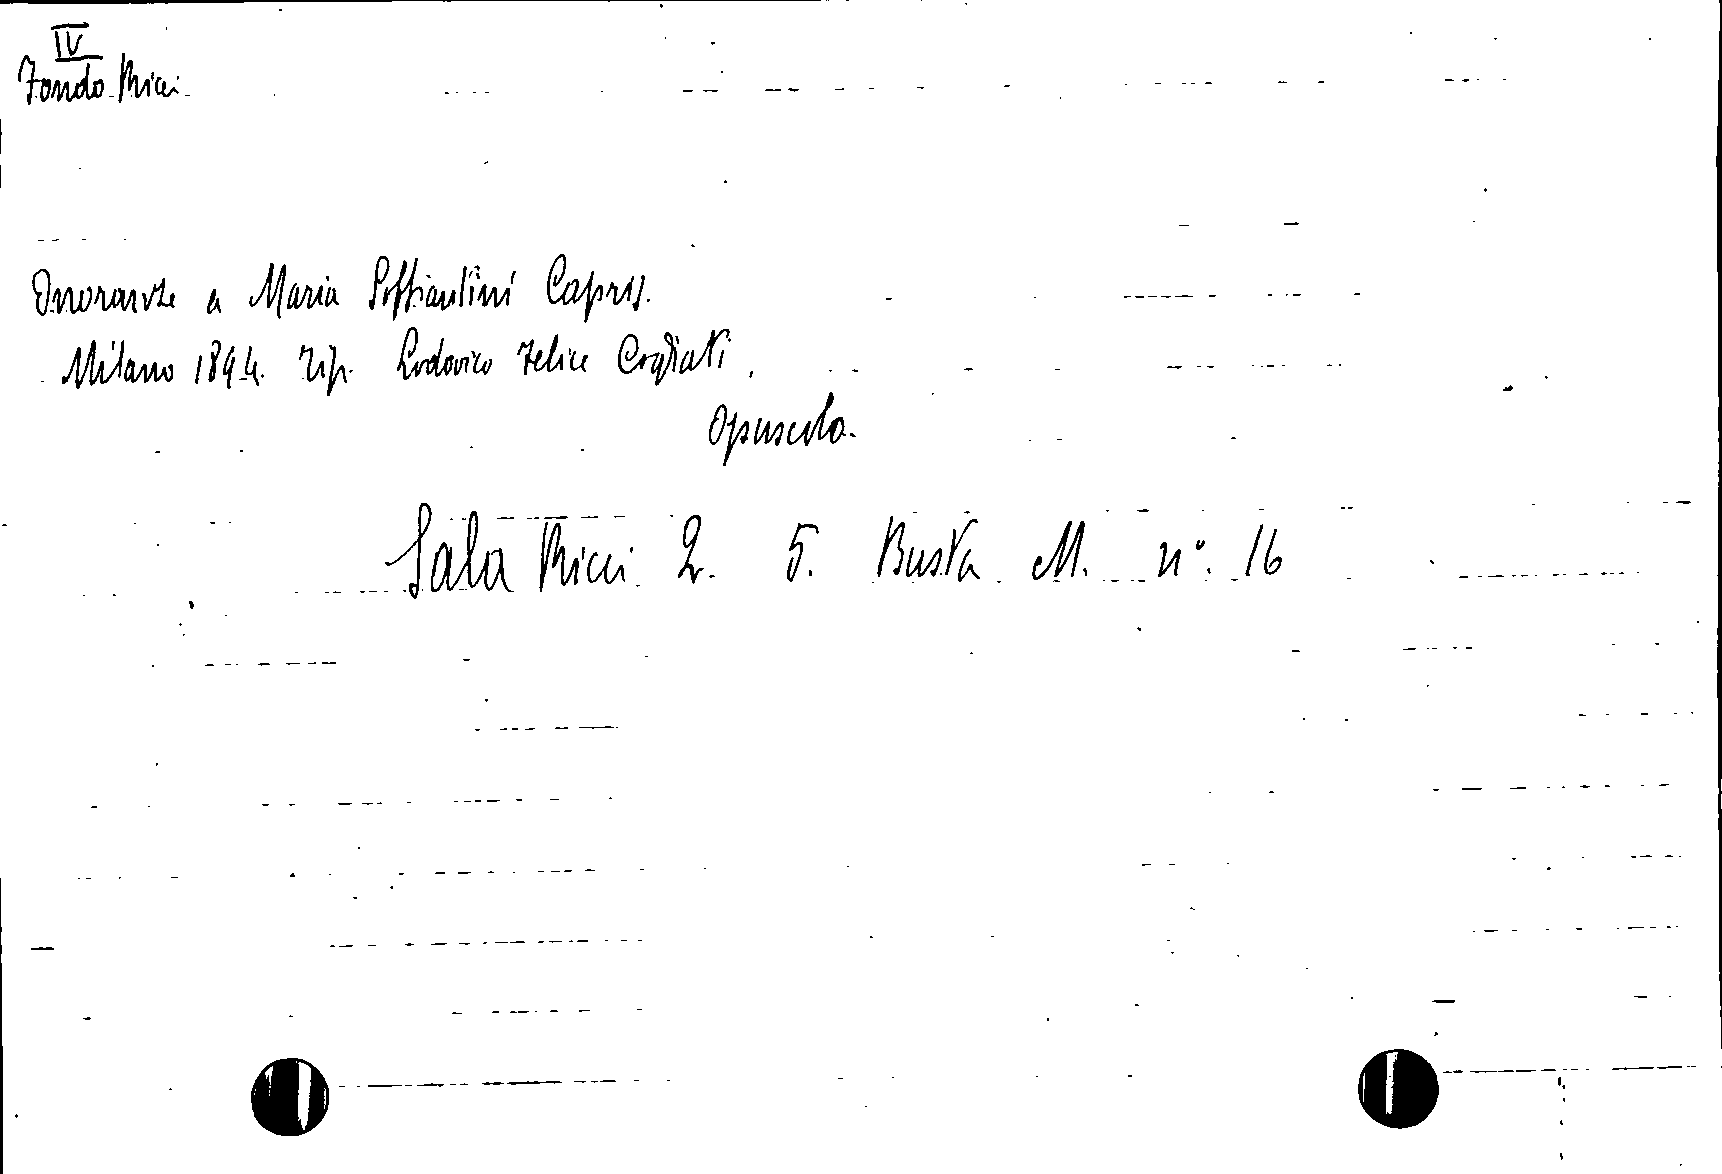 IV
Fondo Ricci
Onoranze a Maria Soffiantini
Milano 1894. Tip. Lodovico Felice Cogliati.
Opuscolo.
Sala Ricci 2. 5. Busta M. n°. 16